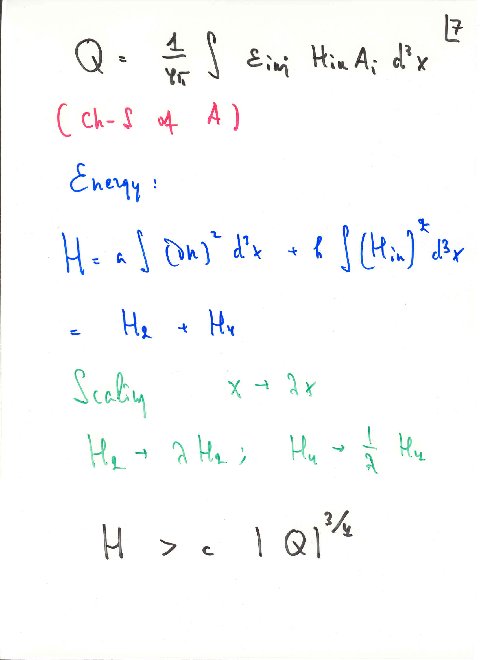 7
Q = 1/4π ∫ ε_imj H_im A_j d³x
(Ch-S of A)
Energy:
H = a ∫ (∂n)² d³x + b ∫ (H_in)² d³x
= H₂ + H₄
Scaling x → λx
H₂ → λ H₂ ; H₄ → 1/λ H₄
H > c |Q|^3/4